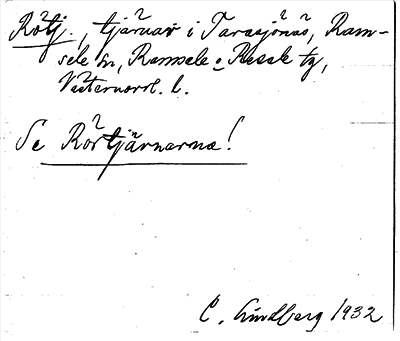 Rötj., tjärnar i Tarasjönäs, Ram-
sele sn, Ramsele o Resele tg,
Västernorrl. l.
Se Rörtjärnarna!
C. Lindberg 1932